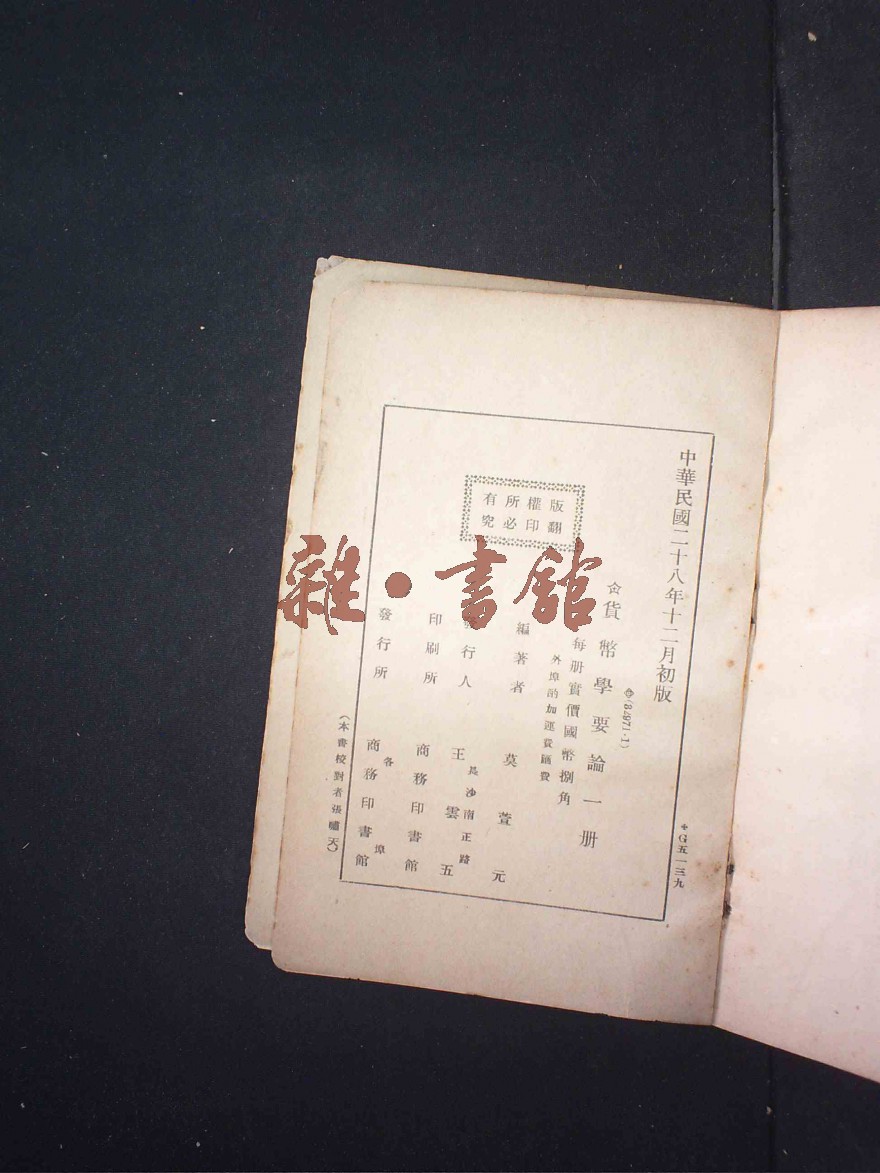 中華民國二十八年十二月初版
✚G五一三九
貨幣學要論一册
(84971·1)
每册實價國幣捌角
外埠酌加運費匯費
版權所有
翻印必究
編著者 莫萱元
發行人 王雲五
長沙南正路
印刷所 商務印書館
發行所 商務印書館
各埠
(本書校對者張嘯天)
雜·書館